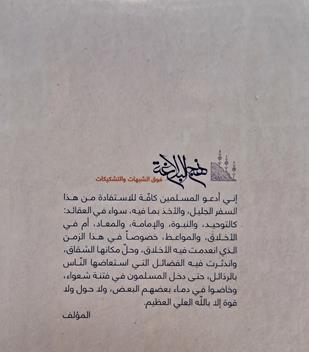 نهج البلاغة
فوق الشبهات والتشكيكات
إني أدعو المسلمين كافّة للاستفادة من هذا
السفر الجليل، والأخذ بما فيه، سواء في العقائد:
كالتوحيد، والنبوة، والإمامة، والمعاد، أم في
الأخلاق، والمواعظ، خصوصاً في هذا الزمن
الذي انعدمت فيه الأخلاق، وحلّ مكانها الشقاق،
واندثرت فيه الفضائل التي استعاضها النّاس
بالرذائل، حتى دخل المسلمون في فتنة شعواء،
وخاضوا في دماء بعضهم البعض، ولا حول ولا
قوة إلا باللّه العلي العظيم.
المؤلف